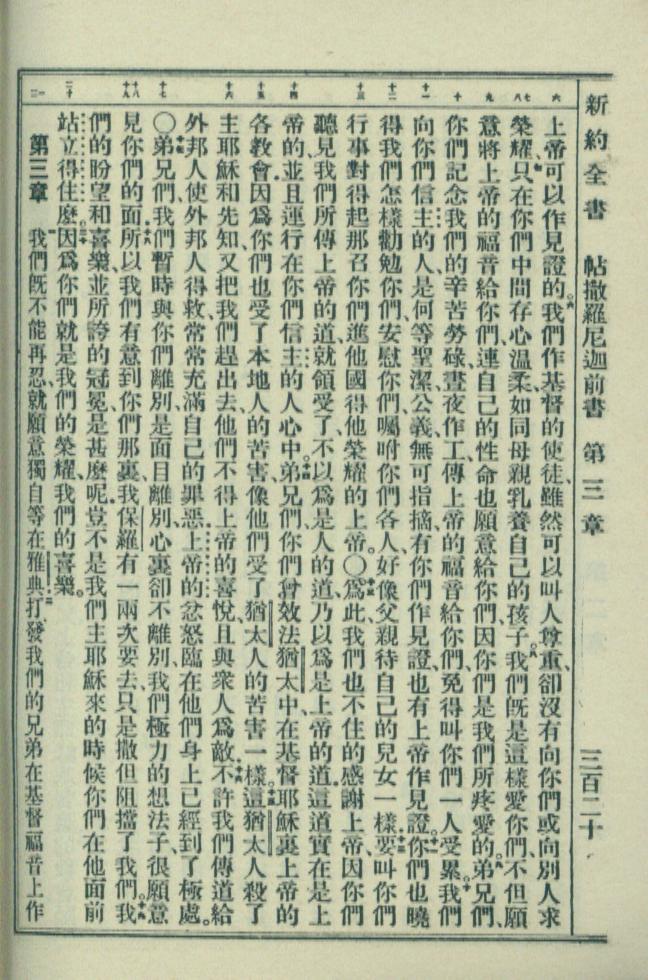 新約全書 帖撒羅尼迦前書 第三章 三百二十
六 七八 九 十 十一 十二 十三 十四 十五 十六 十七 十八 十九 二十 一 二
上帝可以作見證的、六我們作基督的使徒、雖然可以叫人尊重、卻沒有向你們或向別人求
榮耀、七只在你們中間存心溫柔、如同母親乳養自己的孩子、八我們旣是這樣愛你們、不但願
意將上帝的福音給你們、連自己的性命也願意給你們、因你們是我們所疼愛的、九弟兄們、
你們記念我們的辛苦勞碌、晝夜作工、傳上帝的福音給你們、免得叫你們一人受累、十我們
向你們信主的人、是何等聖潔公義、無可指摘、有你們作見證、也有上帝作見證、十一你們也曉
得我們怎樣勸勉你們、安慰你們、囑咐你們各人、好像父親待自己的兒女一樣、十二要叫你們
行事對得起那召你們進他國得他榮耀的上帝。〇十三爲此我們也不住的感謝上帝、因你們
聽見我們所傳上帝的道、就領受了、不以爲是人的道、乃以爲是上帝的道、這道實在是上
帝的、並且運行在你們信主的人心中、十四弟兄們、你們曾效法猶太中、在基督耶穌裏上帝的
各教會、因爲你們也受了本地人的苦害、像他們受了猶太人的苦害一樣、十五這猶太人殺了
主耶穌和先知、又把我們趕出去、他們不得上帝的喜悅、且與衆人爲敵、十六不許我們傳道給
外邦人、使外邦人得救、常常充滿自己的罪惡、上帝的忿怒臨在他們身上已經到了極處。
〇十七弟兄們、我們暫時與你們離別、是面目離別、心裏卻不離別、我們極力的想法子、很願意
見你們的面、十八所以我們有意到你們那裏、我保羅有一兩次要去、只是撒但阻擋了我們。十九我
們的盼望和喜樂、並所誇的冠冕、是甚麼呢、豈不是我們主耶穌來的時候、你們在他面前
站立得住麼、二十因爲你們就是我們的榮耀、我們的喜樂。
第三章 一我們旣不能再忍、就願意獨自等在雅典、二打發我們的兄弟在基督福音上作